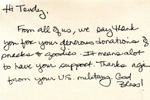 Hi Tewdy,
From all of us, we say thank
you for your generous donations of
snacks & goodies. It means alot
to have your support. Thanks again
from your U.S. military. God
Bless!